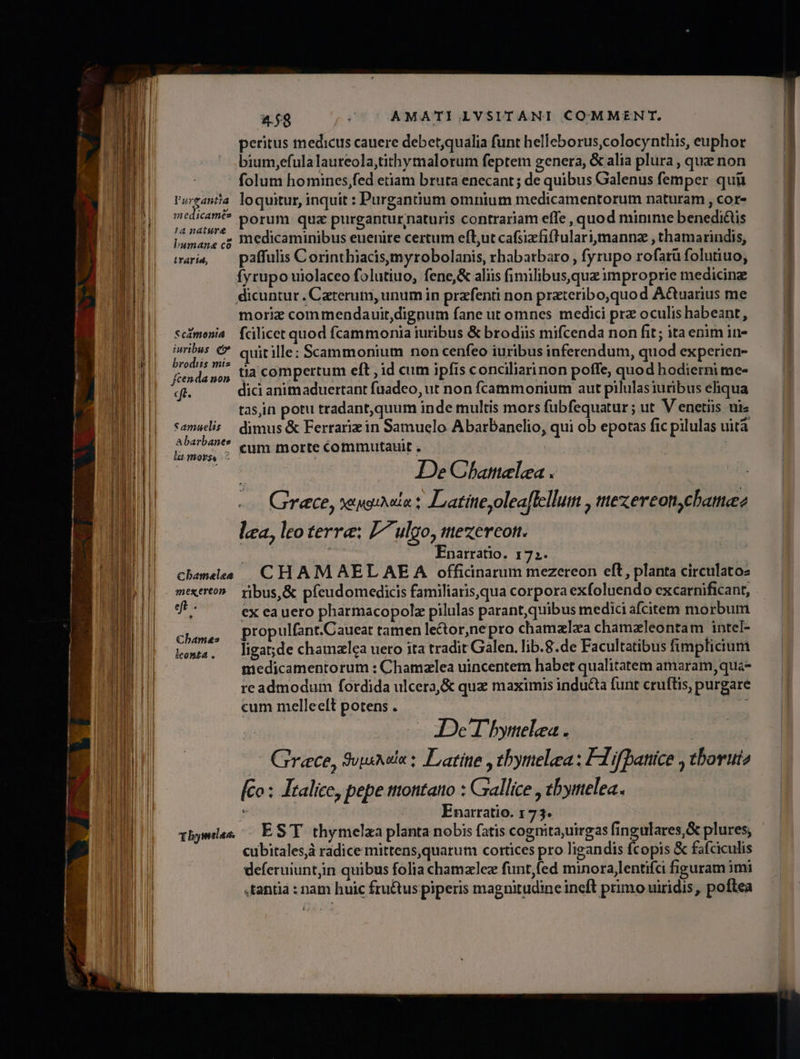 458 AMATI LVSITANI COMMENT.
peritus medicus cauere debet,qualia ſunt helleborus,colocynthis, euphor
bium,eſula laureola,tithymalorum ſeptem genera, & alia plura, quæ non
ſolum homines,ſed etiam bruta enecant; de quibus Galenus ſemper quũ
Purgantia loquitur, inquit: Purgantium omnium medicamentorum naturam, cor=
medicamē= porum quæ purgantur,naturis contrariam eſſe, quod minime benedictis
ta naturæ humanæ cõ medicaminibus euenire certum eſt,ut caſsiæ fiſtulari,mannæ, thamarindis,
traria, paſſulis Corinthiacis,myrobolanis, rhabarbaro, ſyrupo roſarũ ſolutiuo,
ſyrupo uiolaceo ſolutiuo, ſene,& aliis ſimilibus,quæ improprie medicinæ
dicuntur. Cæterum, unum in præſenti non præteribo,quod Actuarius me
moriæ commendauit,dignum ſane ut omnes medici præ oculis habeant,
Scāmonia ſcilicet quod ſcammonia iuribus & brodiis miſcenda non ſit; ita enim in=
iuribus & quit ille: Scammonium non cenſeo iuribus inferendum, quod experien=
brodiis miſcenda non tia compertum eſt, id cum ipſis conciliari non poſſe, quod hodierni me=
eſt. dici animaduertant ſuadeo, ut non ſcammonium aut pilulas iuribus eliqua
tas,in potu tradant,quum inde multis mors ſubſequatur; ut Venetiis ui=
Samuelis dimus & Ferrariæ in Samuelo Abarbanelio, qui ob epotas ſic pilulas uitã
Abarbane= cum morte commutauit.
lii mors.
De Chamelæa.
Græce, χαμαιλαία: Latine,oleaſtellum, mezereon,chamæ=
lea, leo terræ: Vulgo, mezereon.
Enarratio. 172.
Chamelæa CHAMAELAEA officinarum mezereon eſt, planta circulato=
mezereon ribus,& pſeudomedicis familiaris,qua corpora exſoluendo excarnificant,
eſt. ex ea uero pharmacopolæ pilulas parant,quibus medici aſcitem morbum
Chamæ= propulſant.Caueat tamen lector,ne pro chamælæa chamæleontam intel=
leonta. ligat;de chamælea uero ita tradit Galen. lib.8.de Facultatibus ſimplicium
medicamentorum: Chamælea uincentem habet qualitatem amaram, qua=
re admodum ſordida ulcera,& quæ maximis inducta ſunt cruſtis, purgare
cum melle eſt potens.
De Thymelæa.
Græce, θυμελαία: Latine, thymelæa: Hiſpanice, thoruiſ=
ſo: Italice, pepe montano: Gallice, thymelea.
Enarratio. 173.
Thymelæa EST thymelæa planta nobis ſatis cognita,uirgas ſingulares,& plures,
cubitales,à radice mittens,quarum cortices pro ligandis ſcopis & faſciculis
deſeruiunt,in quibus folia chamæleæ ſunt,ſed minora,lentiſci figuram imi
tantia: nam huic fructus piperis magnitudine ineſt primo uiridis, poſtea